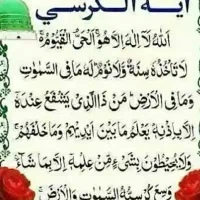 آية الكرسي
اَللّٰهُ لَآ اِلٰهَ اِلَّا هُوَ اَلْحَىُّ الْقَيُّوْمُ ۚ
لَا تَاْخُذُهٗ سِنَةٌ وَّلَا نَوْمٌ لَهٗ مَا فِى السَّمٰوٰتِ
وَمَا فِى الْاَرْضِ مَنْ ذَا الَّذِىْ يَشْفَعُ عِنْدَهٗٓ
اِلَّا بِاِذْنِهٖ يَعْلَمُ مَا بَيْنَ اَيْدِيْهِمْ وَمَا خَلْفَهُمْ
وَلَا يُحِيْطُوْنَ بِشَىْءٍ مِّنْ عِلْمِهٖٓ اِلَّا بِمَا شَآءَ
وَسِعَ كُرْسِيُّهُ السَّمٰوٰتِ وَالْاَرْضَ